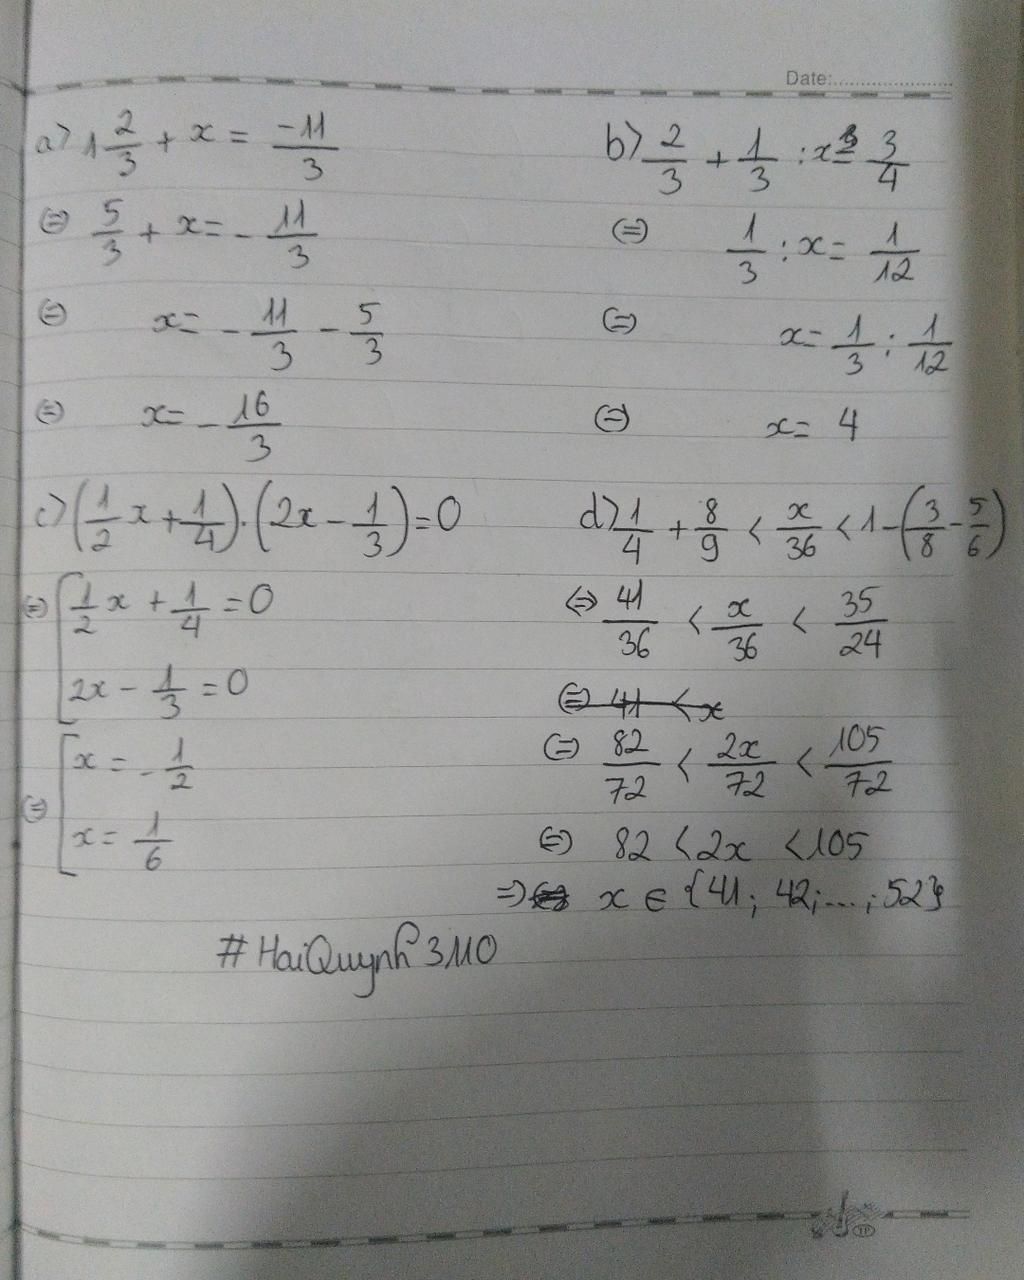 Date:......................
a) 1 2/3 + x = -11/3
(=) 5/3 + x = - 11/3
(=) x = - 11/3 - 5/3
(=) x = - 16/3
b) 2/3 + 1/3 : x = 3/4
(=) 1/3 : x = 1/12
(=) x = 1/3 : 1/12
(=) x = 4
c) (1/2 x + 1/4) . (2x - 1/3) = 0
(=) [ 1/2 x + 1/4 = 0
2x - 1/3 = 0
(=) [ x = - 1/2
x = 1/6
d) 1/4 + 8/9 < x/36 < 1 - (3/8 - 5/6)
<=> 41/36 < x/36 < 35/24
(=) 41 < x
(=) 82/72 < 2x/72 < 105/72
(=) 82 < 2x < 105
=> x ∈ {41; 42; ...; 52}
# HaiQuynh 3110